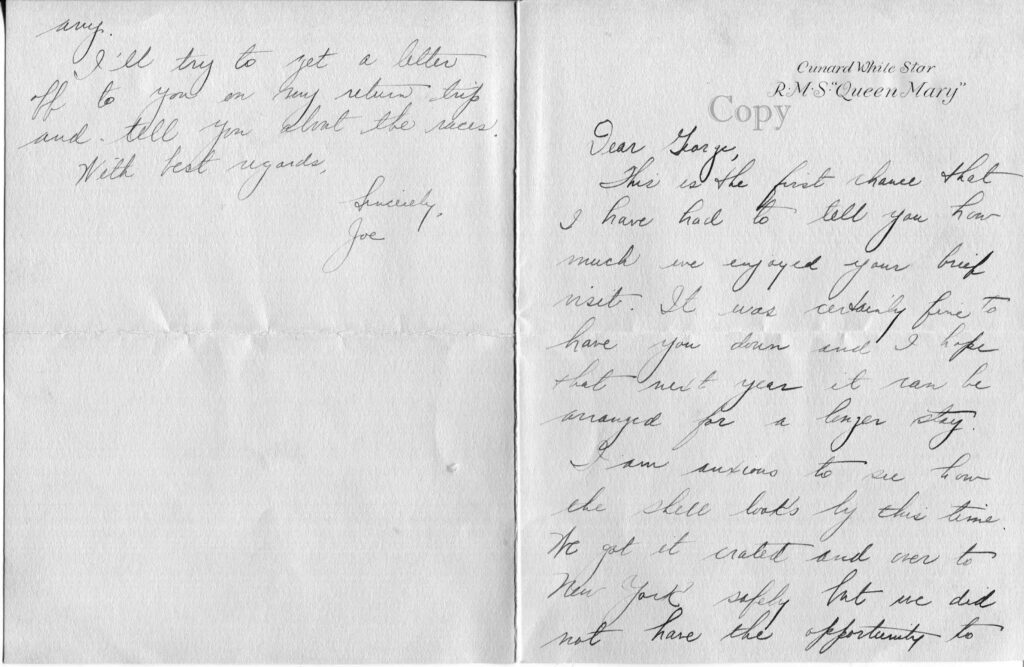 any.
I'll try to get a letter
off to you on my return trip
and tell you about the races.
With best regards,
Sincerely,
Joe
Cunard White Star
R.M.S. "Queen Mary"
Copy
Dear George,
This is the first chance that
I have had to tell you how
much we enjoyed your brief
visit. It was certainly fine to
have you down and I hope
that next year it can be
arranged for a longer stay.
I am anxious to see how
the shell looks by this time.
We got it crated and over to
New York safely but we did
not have the opportunity to